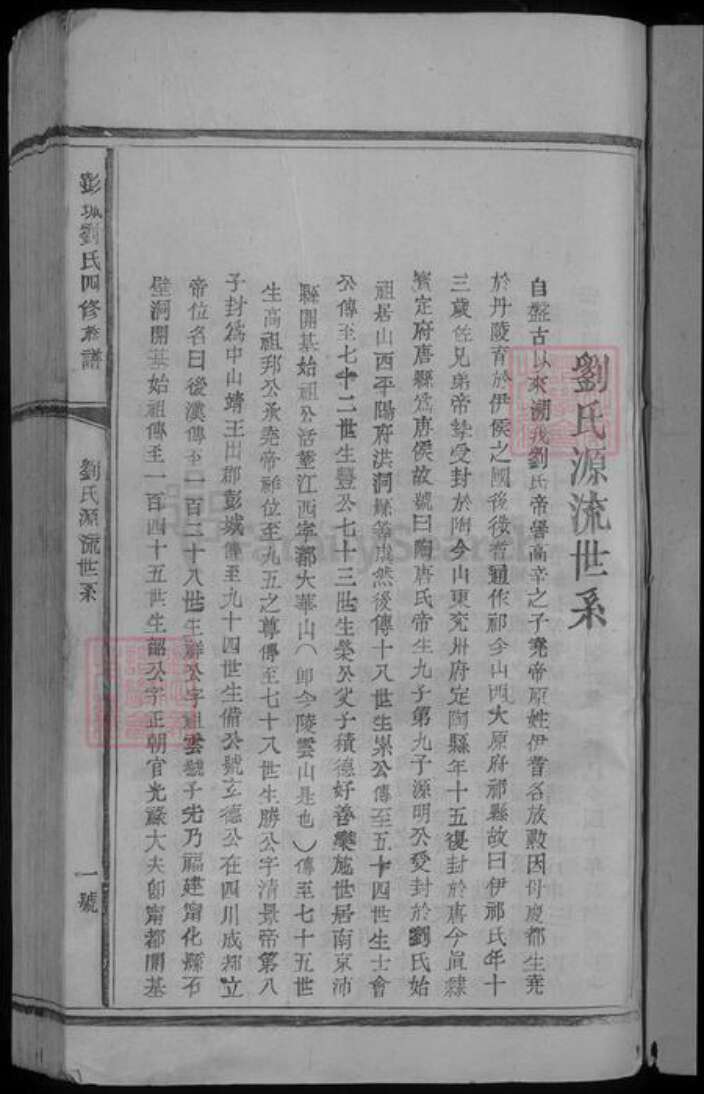 劉氏源流世系
自盤古以來溯我劉氏帝嚳高辛之子堯帝原姓伊耆名放勲因母慶都生堯
於丹陵育於伊侯之國後徙耆通作祁今山西大原府祁縣故曰伊祁氏年十
三歲佐兄弟帝摯受封於陶今山東兖州府定陶縣年十五復封於唐今眞隸
定府唐縣爲唐侯故號曰陶唐氏帝生九子第九子源明公受封於劉氏始
祖居山西平陽府洪洞縣等處然後傳十八世生累公傳至五十四世生士會
公傳至七十二世生豐公七十三世生榮公父子積德好善樂施世居南京沛
縣開基始祖公活塟江西寜都大華山（卽今陵雲山是也）傳至七十五世
生高祖邦公承堯帝雜位至九五之尊傳至七十八世生勝公字清景帝第八
子封爲中山靖王出郡彭城傳至九十四世生備公號玄德公在四川成都立
帝位名曰後漢傳至一百二十八世生祥公字圖雲號子先乃福建甯化縣石
壁洞開基始祖傳至一百四十五世生韶公字正朝官光祿大夫卽甯都開基
彭城劉氏四修族譜
劉氏源流世系
一號